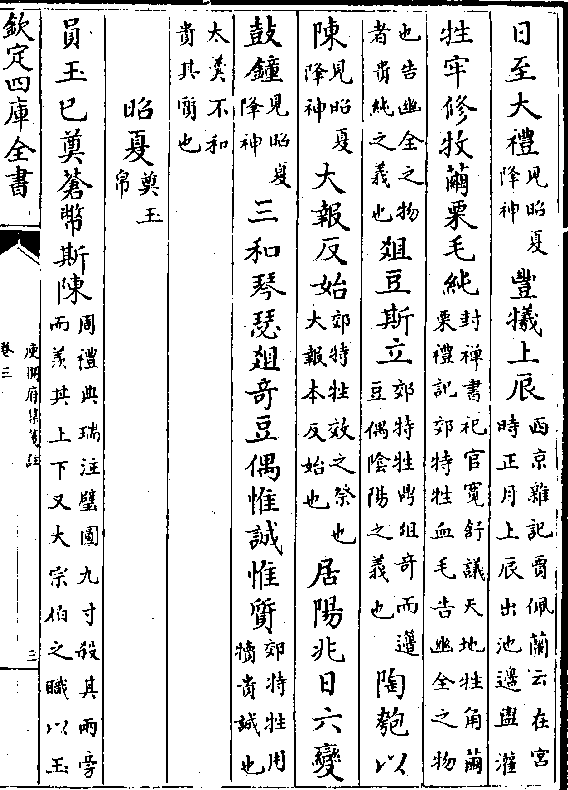 日至大禮見昭夏降神豐犧上辰西京雜記賈佩蘭云在宮時正月上辰出池邊盥濯
牲牢修牧繭栗毛純封禪書祀官寬舒議天地牲角繭栗禮記郊特牲血毛告幽全之物
也告幽全之物者貴純之義也俎豆斯立郊特牲鼎俎奇而籩豆偶陰陽之義也陶匏以
陳見昭夏降神大報反始郊特牲效之祭也大報本反始也居陽兆日六變
鼓鐘見昭夏降神三和琴瑟俎奇豆偶惟誠惟質郊特牲用犢貴誠也
太羮不和貴其質也
昭夏奠玉帛
員玉巳奠蒼幣斯陳周禮典瑞注璧圜九寸殺其兩旁而羨其上下又大宗伯之職以玉
欽定四庫全書
庾開府集箋註
卷三
三